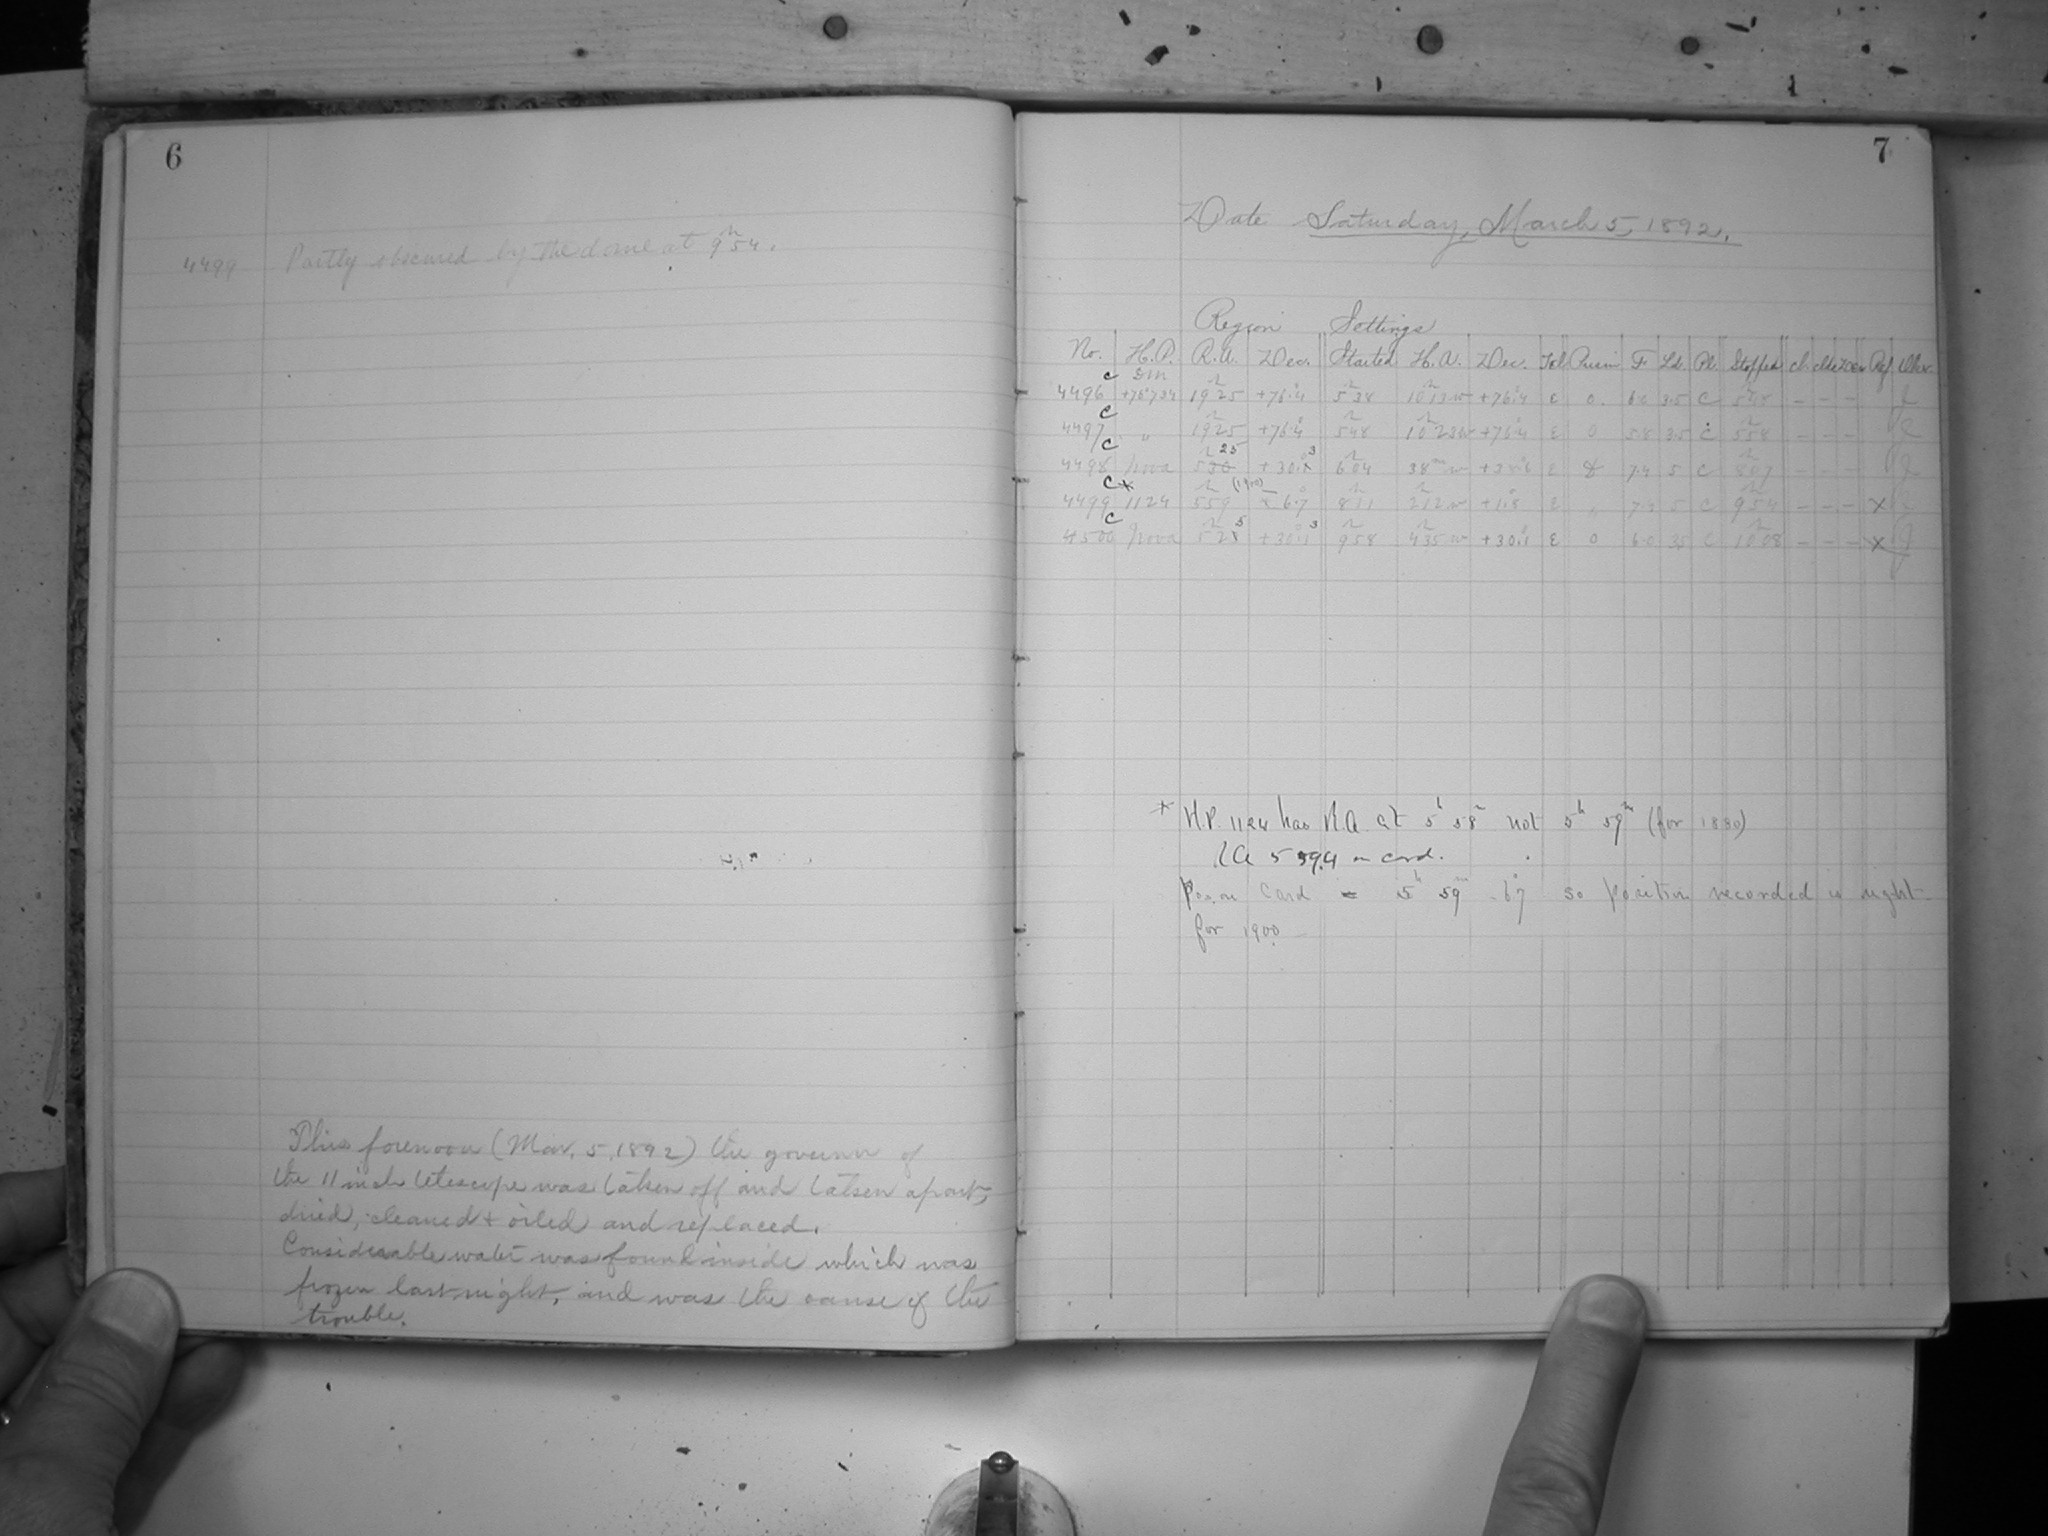 6
4499 Partly obscured by the dome at 9h54.
This forenoon (Mar. 5, 1892) the governor of
the 11 inch telescope was taken off and taken apart,
dried, cleaned + oiled and replaced.
Considerable water was found inside which was
frozen last night, and was the cause of the
trouble.
7
Date Saturday, March 5, 1892.
Region Settings
No. H.P. R.A. Dec. Started H.A. Dec. Tel Prism F Ld. Pl. Stopped Cl. Clds Ref. Obsr.
C DM
4496 +76°734 19h25 +76°.4 5h38 10h13w +76°.4 E 0. 6.0 3.5 C 5h48 - - -
C
4497 " 19h25 +76°.4 5h48 10h23w +76°.4 E 0 5.8 3.5 C 5h58 - - -
C 25 3
4498 Nova 5h30 +30.1 6h04 38m w E 7.4 5 C 8h07 - - -
C * (1900)
4499 1124 5h59 - 6°.7 8h11 2h12w +1.8 E " 5 C 9h54 X
C 5 3
4500 Nova 5h28 +30°.1 9h58 4h35w +30°.1 E 0 6.0 35 C 10h08 - - - X
* H.P. 1124 has R.A. at 5h 58m not 5h 59m (for 1880)
RA 5 59.4 on card.
Pos. on Card = 5h 59m -6°7 so position recorded is right
for 1900